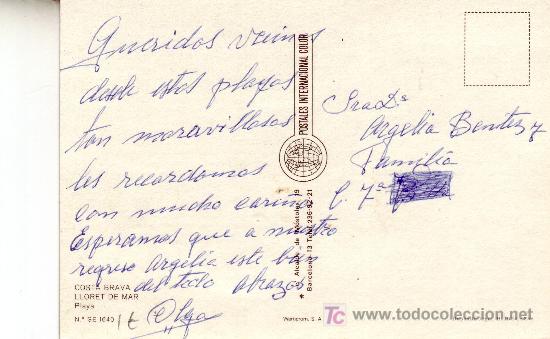 Queridos vecinos
desde estas playas
tan maravillosas
les recordamos
con mucho cariño
Esperamos que a nuestro
regreso Argelia este bien
del todo abrazos
Olga
COSTA BRAVA
LLORET DE MAR
Playa
N.º SE 1040
POSTALES INTERNACIONAL COLOR
Barcelona-13 Telf. 236-92-21
Sra Dª
Argelia Benitez y
Familia
C. 7ª
todocoleccion.net